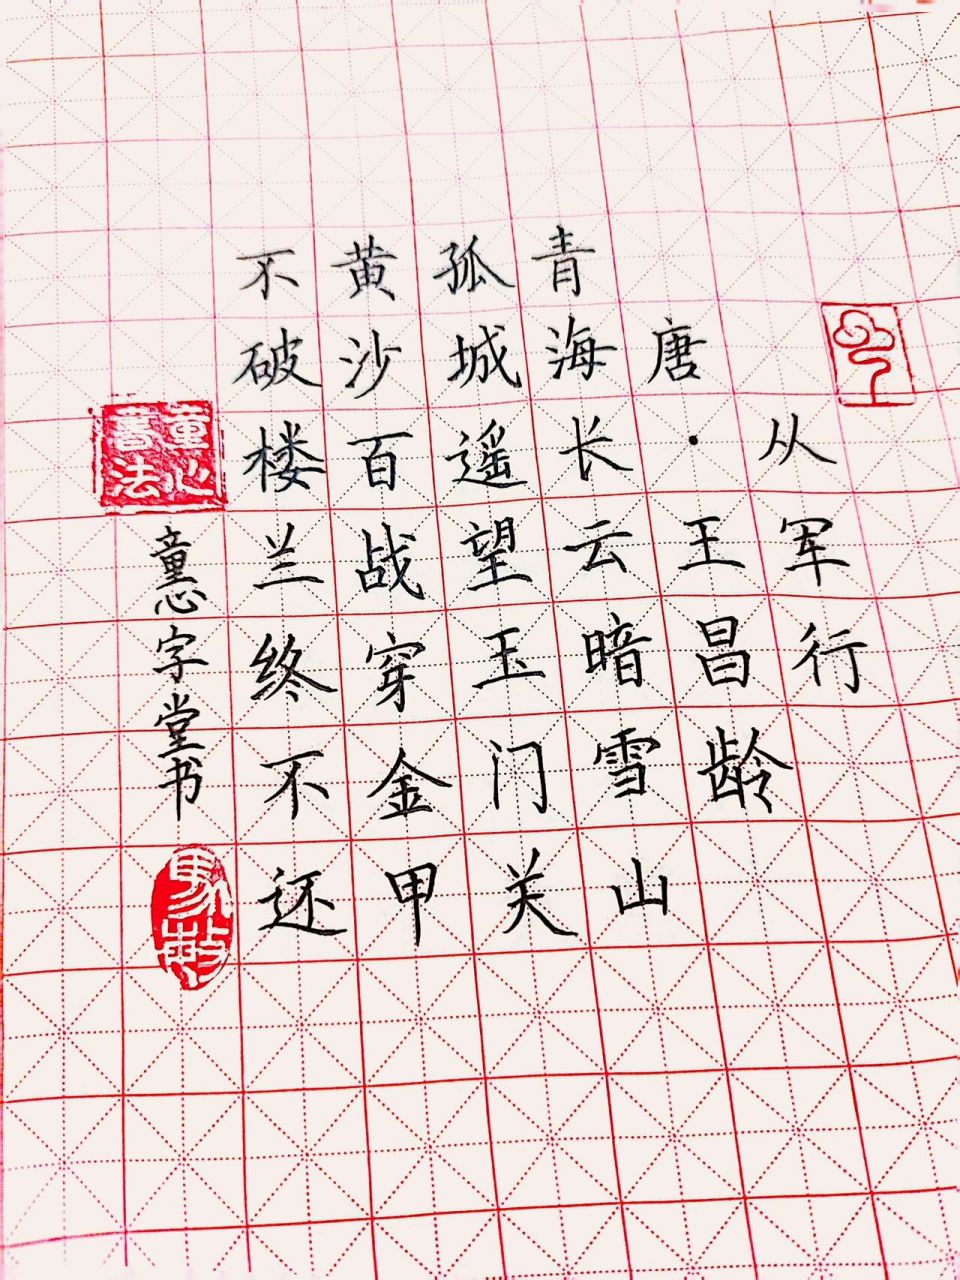 从军行
唐·王昌龄
青海长云暗雪山
孤城遥望玉门关
黄沙百战穿金甲
不破楼兰终不还
童心字堂书
童心
书法